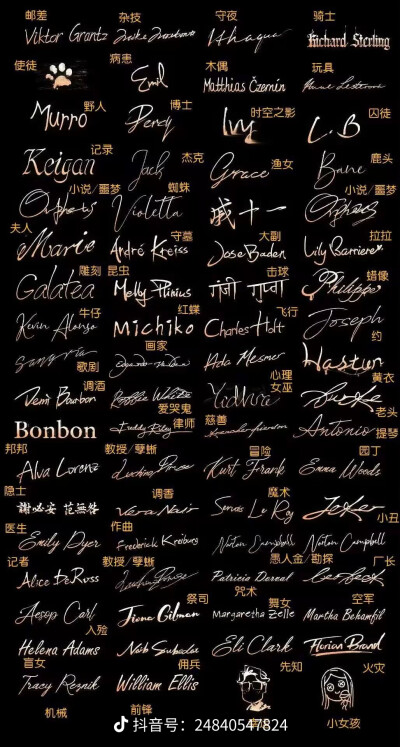 邮差 杂技 守夜 骑士
Viktor Grantz Ithaqua Richard Sterling
使徒 病患 木偶 玩具
Emil Matthias Czernin
野人 博士 时空之影 囚徒
Murro Percy Ivy L.B
记录 杰克 渔女 鹿头
Keigan Jack Grace Bane
小说/噩梦 蜘蛛 小说/噩梦
Orpheus Violetta 戚十一 Orpheus
夫人 守墓 大副 拉拉
Marie André Kreiss Jose Baden Lily Barriere
雕刻 昆虫 击球 蜡像
Galatea Melly Plinius गंजी गुप्ता Philippe
牛仔 红蝶 飞行 约
Kevin Alonso Michiko Charles Holt Joseph
歌剧 画家 心理 黄衣
Sangria Ada Mesmer Hastur
调酒 爱哭鬼 女巫 老头
Demi Bourbon Robbie White Yidhra Burke
律师 慈善 提琴
Bonbon Freddy Riley Antonio
邦邦 教授/孽蜥 冒险 园丁
Alva Lorenz Luchino Diruse Kurt Frank Emma Woods
隐士 调香 魔术 小丑
謝必安 范無咎 Vera Nair Servais Le Roy Joker
医生 作曲 愚人金/勘探
Emily Dyer Frederick Kreiburg Norton Campbell Norton Campbell
记者 教授/孽蜥 厂长
Alice DeRoss Luchino Diruse Patricia Dorval Leo Beck
祭司 咒术 舞女 空军
Aesop Carl Fiona Gilman Margaretha Zelle Martha Behamfil
入殓
Helena Adams Naib Subedar Eli Clark Florian Brand
盲女 佣兵 先知 火灾
Tracy Reznik William Ellis
机械 前锋 小女孩
抖音号：24840547824